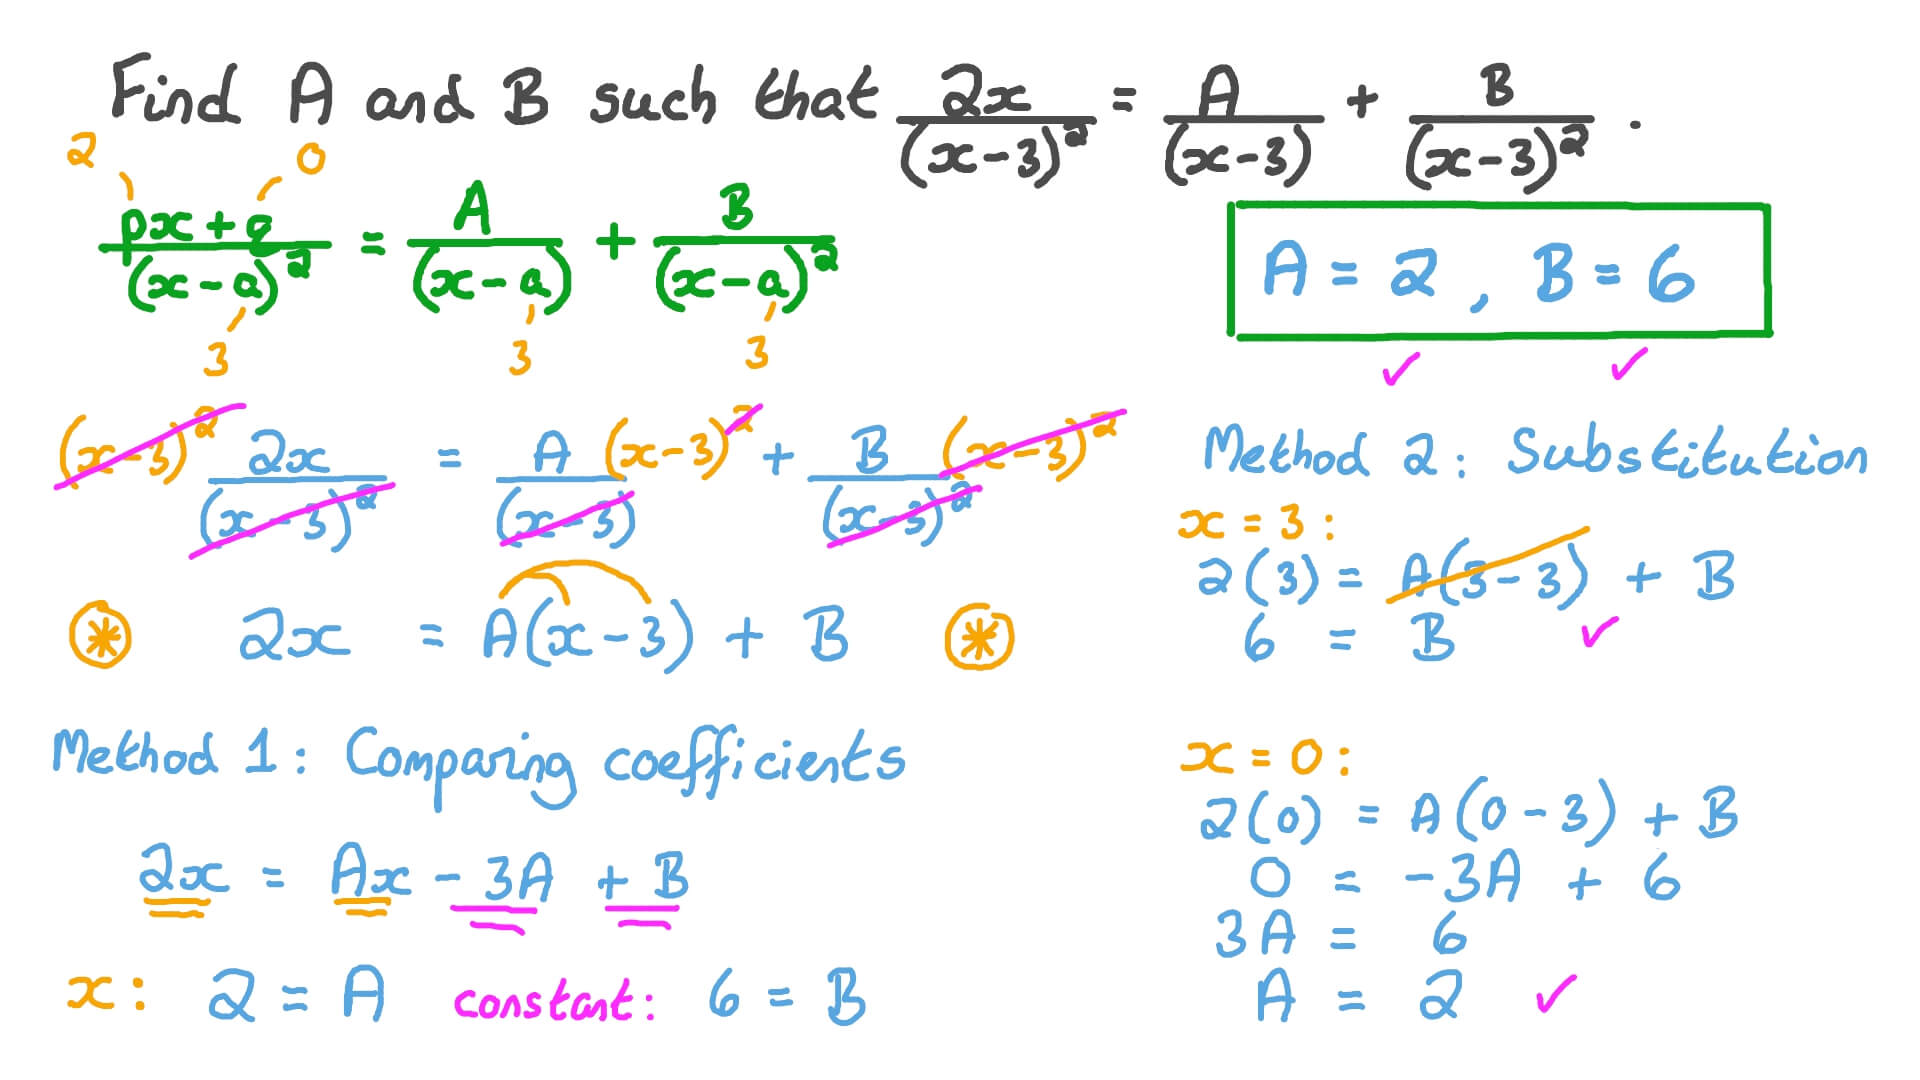 Find A and B such that 2x/(x-3)² = A/(x-3) + B/(x-3)² .
2 0
px+q/(x-a)² = A/(x-a) + B/(x-a)²
3 3 3
A = 2 , B = 6 ✓ ✓
(x-3)² 2x/(x-3)² = A(x-3)²/(x-3) + B(x-3)²/(x-3)²
⊛ 2x = A(x-3) + B ⊛
Method 1: Comparing coefficients
2x = Ax - 3A + B
x: 2 = A constant: 6 = B
Method 2: Substitution
x = 3:
2(3) = A(3-3) + B
6 = B ✓
x = 0:
2(0) = A(0-3) + B
0 = -3A + 6
3A = 6
A = 2 ✓